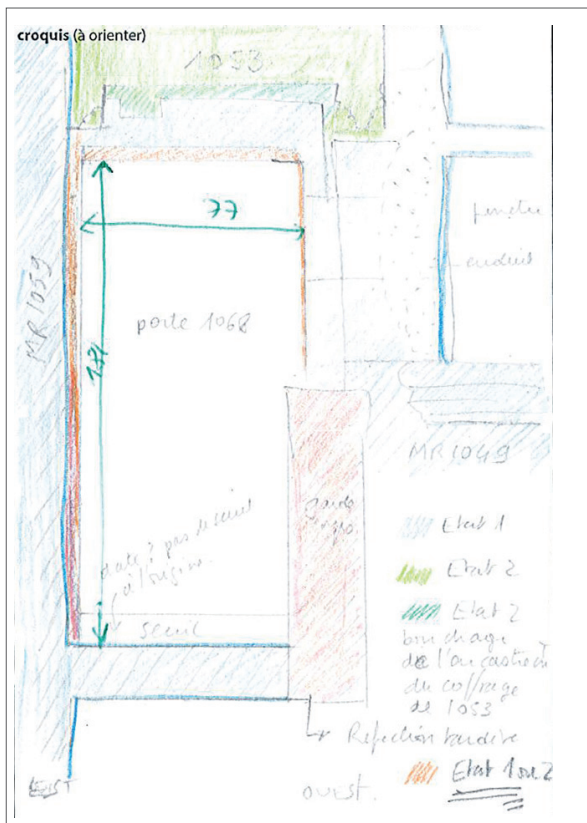 croquis (à orienter)
1053
77
MR 1059
porte 1068
171
fenêtre
enduit
MR 1049
garde
date ? pas de seuil
à l'origine.
seuil
Etat 1
Etat 2
Etat 2
bouchage
de l'encastremt
du coffrage
de 1053
Refection tardive
Etat 1 ou 2
ouest.